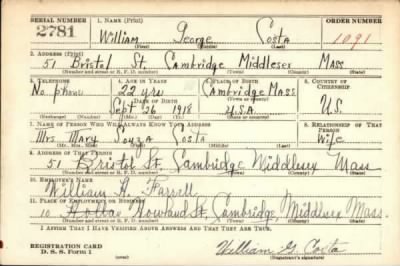 SERIAL NUMBER 1. NAME (Print) ORDER NUMBER
2781 William George Costa 1091
(First) (Middle) (Last)
2. ADDRESS (Print)
51 Bristol St. Cambridge Middlesex Mass
(Number and street or R. F. D. number) (Town) (County) (State)
3. TELEPHONE 4. AGE IN YEARS 5. PLACE OF BIRTH 6. COUNTRY OF CITIZENSHIP
No phone 22 yrs Cambridge Mass
DATE OF BIRTH (Town or county)
Sept 26 1918 U.S.A U.S.
(Exchange) (Number) (Mo.) (Day) (Yr.) (State or country)
7. NAME OF PERSON WHO WILL ALWAYS KNOW YOUR ADDRESS 8. RELATIONSHIP OF THAT PERSON
Mrs Mary Souza Costa Wife
(Mr., Mrs., Miss) (First) (Middle) (Last)
9. ADDRESS OF THAT PERSON
51 Bristol St. Cambridge Middlesex Mass
(Number and street or R. F. D. number) (Town) (County) (State)
10. EMPLOYER'S NAME
William H. Farrell
11. PLACE OF EMPLOYMENT OR BUSINESS
10 Howland St. Cambridge, Middlesex Mass.
(Number and street or R. F. D. number) (Town) (County) (State)
I AFFIRM THAT I HAVE VERIFIED ABOVE ANSWERS AND THAT THEY ARE TRUE.
REGISTRATION CARD
D. S. S. Form 1 William G. Costa
(Registrant's signature)